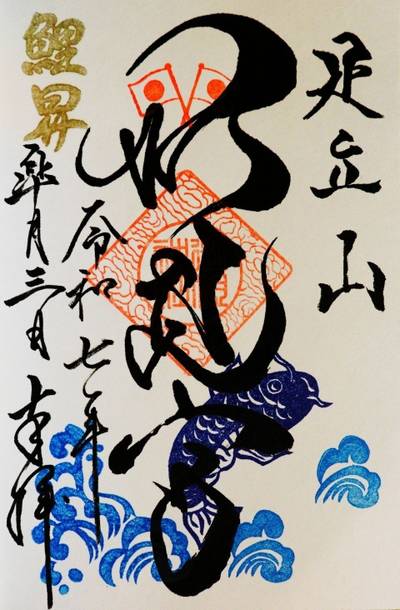 足立山
妙見宮
令和七年
鯉昇
皐月三日 奉拝